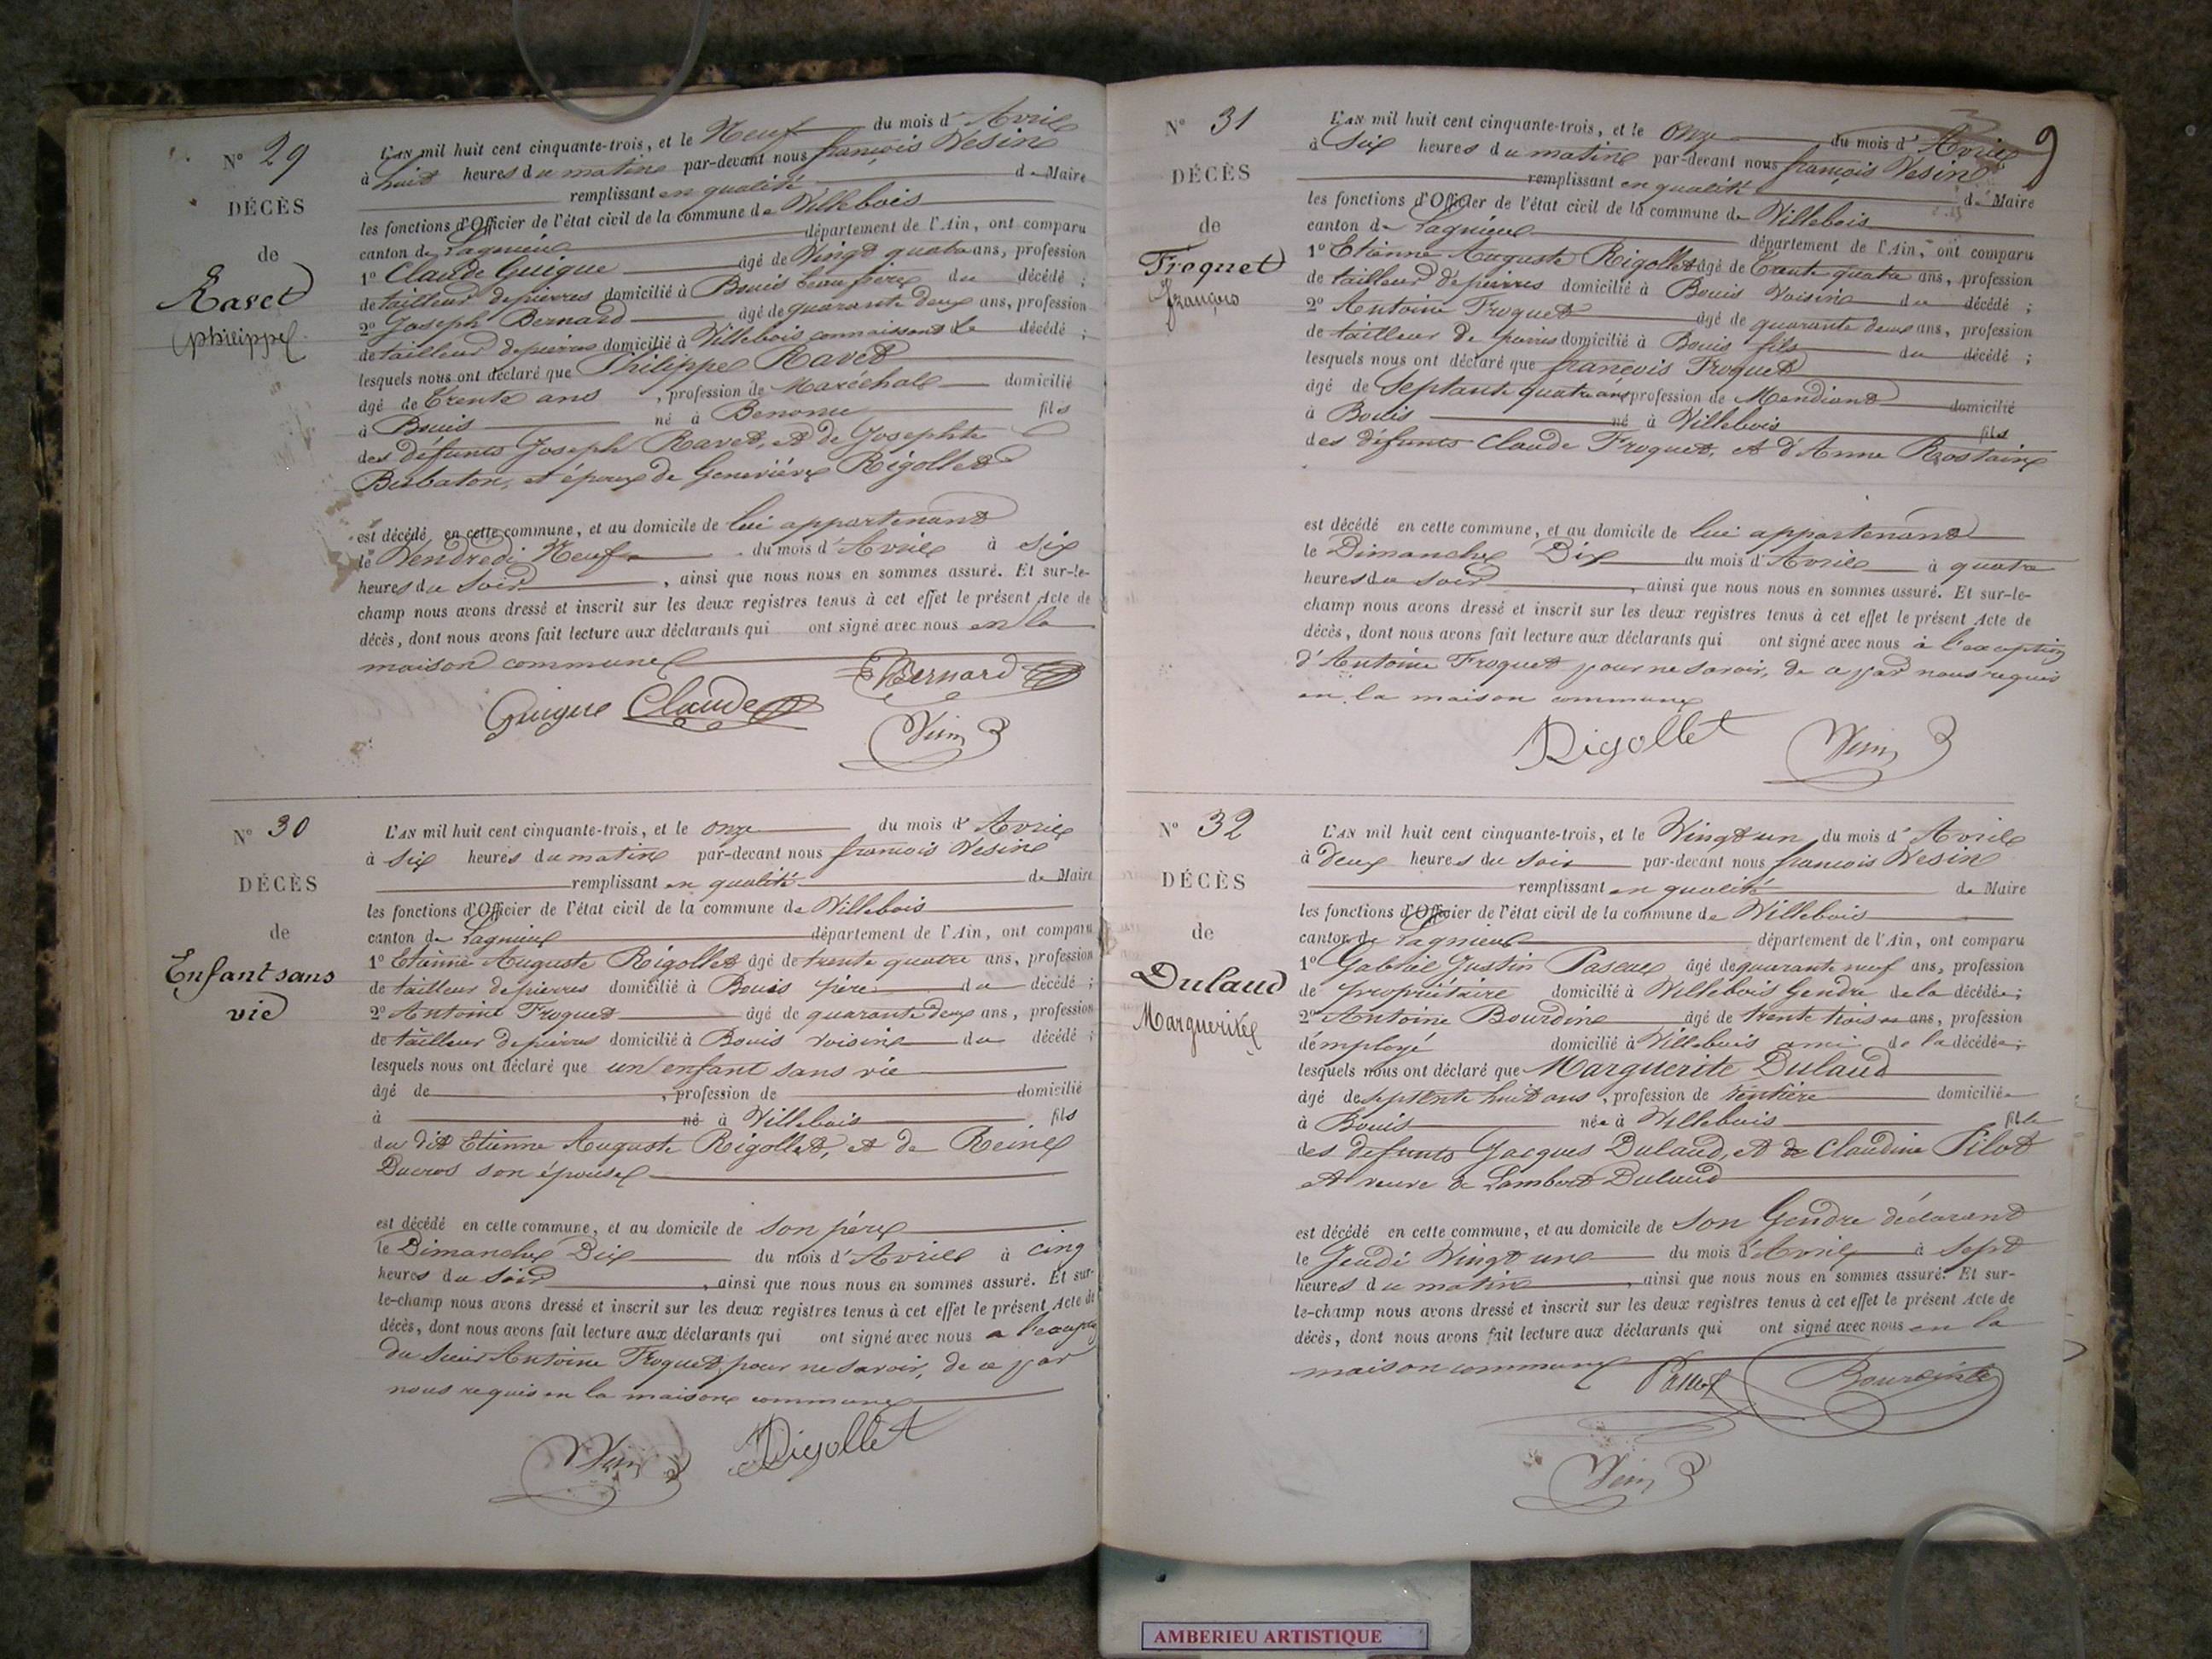 N° 29
DÉCÈS
de
Ravet
Philippe
L'AN mil huit cent cinquante-trois, et le Neuf du mois d'Avril
à huit heures du matin par-devant nous françois Vesin
remplissant en qualité de Maire
les fonctions d'Officier de l'état civil de la commune de Villebois
canton de Lagnieu département de l'Ain, ont comparu
1° Claude Guigue âgé de Vingt quatre ans, profession
de tailleur de pierres domicilié à Bouis beau frère du décédé ;
2° Joseph Bernard âgé de quarante deux ans, profession
de tailleur de pierres domicilié à Villebois connaissant le décédé ;
lesquels nous ont déclaré que Philippe Ravet
âgé de trente ans, profession de Maréchal domicilié
à Bouis né à Benonce fils
des défunts Joseph Ravet, et de Josephte
Berbaton, et époux de Geneviève Rigollet
est décédé en cette commune, et au domicile de lui appartenant
le Vendredi Neuf du mois d'Avril à six
heures du soir, ainsi que nous nous en sommes assuré. Et sur-le-
champ nous avons dressé et inscrit sur les deux registres tenus à cet effet le présent Acte de
décès, dont nous avons fait lecture aux déclarants qui ont signé avec nous en la
maison commune
Guigue Claude Bernard
Vesin
N° 30
DÉCÈS
de
Enfant sans
vie
L'AN mil huit cent cinquante-trois, et le onze du mois d'Avril
à six heures du matin par-devant nous françois Vesin
remplissant en qualité de Maire
les fonctions d'Officier de l'état civil de la commune de Villebois
canton de Lagnieu département de l'Ain, ont comparu
1° Etienne Auguste Rigollet âgé de trente quatre ans, profession
de tailleur de pierres domicilié à Bouis père du décédé ;
2° Antoine Froquet âgé de quarante deux ans, profession
de tailleur de pierres domicilié à Bouis voisin du décédé ;
lesquels nous ont déclaré que un enfant sans vie
âgé de, profession de domicilié
à né à Villebois fils
du dit Etienne Auguste Rigollet, et de Reine
Ducros son épouse
est décédé en cette commune, et au domicile de son père
le Dimanche Dix du mois d'Avril à cinq
heures du soir, ainsi que nous nous en sommes assuré. Et sur-
le-champ nous avons dressé et inscrit sur les deux registres tenus à cet effet le présent Acte de
décès, dont nous avons fait lecture aux déclarants qui ont signé avec nous a l'exception
du sieur Antoine Froquet, pour ne savoir, de ce par
nous requis en la maison commune
Vesin Rigollet
9
N° 31
DÉCÈS
de
Froquet
françois
L'AN mil huit cent cinquante-trois, et le onze du mois d'Avril
à six heures du matin par-devant nous françois Vesin
remplissant en qualité de Maire
les fonctions d'Officier de l'état civil de la commune de Villebois
canton de Lagnieu département de l'Ain, ont comparu
1° Etienne Auguste Rigollet âgé de trente quatre ans, profession
de tailleur de pierres domicilié à Bouis Voisin du décédé ;
2° Antoine Froquet âgé de quarante deux ans, profession
de tailleur de pierres domicilié à Bouis fils du décédé ;
lesquels nous ont déclaré que françois Froquet
âgé de Septante quatre ans profession de Mendiant domicilié
à Bouis né à Villebois fils
des défunts Claude Froquet, et d'Anne Rostaing
est décédé en cette commune, et au domicile de lui appartenant
le Dimanche Dix du mois d'Avril à quatre
heures du soir, ainsi que nous nous en sommes assuré. Et sur-le-
champ nous avons dressé et inscrit sur les deux registres tenus à cet effet le présent Acte de
décès, dont nous avons fait lecture aux déclarants qui ont signé avec nous à l'exception
d'Antoine Froquet pour ne savoir, de ce par nous requis
en la maison commune
Rigollet Vesin
N° 32
DÉCÈS
de
Dulaud
Marguerite
L'AN mil huit cent cinquante-trois, et le Vingt un du mois d'Avril
à Deux heures du soir par-devant nous françois Vesin
remplissant en qualité de Maire
les fonctions d'Officier de l'état civil de la commune de Villebois
canton de Lagnieu département de l'Ain, ont comparu
1° Gabriel Justin Pascal âgé de quarante neuf ans, profession
de propriétaire domicilié à Villebois Gendre de la décédée ;
2° Antoine Bourdin âgé de trente trois ans, profession
d'employé domicilié à Villebois ami de la décédée ;
lesquels nous ont déclaré que Marguerite Dulaud
âgé de septente huit ans, profession de rentière domiciliée
à Bouis née à Villebois fille
des defunts Jacques Dulaud, et de Claudine Pilot
et veuve de Lambert Dulaud
est décédé en cette commune, et au domicile de son Gendre déclarant
le Jeudi Vingt un du mois d'Avril à sept
heures du matin, ainsi que nous nous en sommes assuré. Et sur-
le-champ nous avons dressé et inscrit sur les deux registres tenus à cet effet le présent Acte de
décès, dont nous avons fait lecture aux déclarants qui ont signé avec nous en la
maison commune Pascal Bourdin
Vesin
AMBERIEU ARTISTIQUE